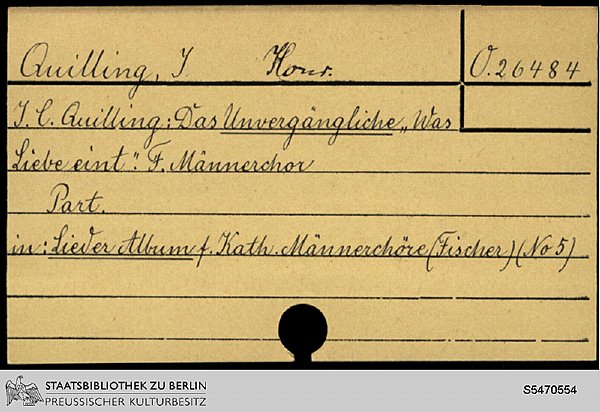 Quilling, J Konr. O.26484
J. C. Quilling: Das Unvergängliche „Was
Liebe eint". F. Männerchor
Part.
in: Lieder Album f. Kath. Männerchöre (Fischer) (No 5)
STAATSBIBLIOTHEK ZU BERLIN
PREUSSISCHER KULTURBESITZ
S5470554